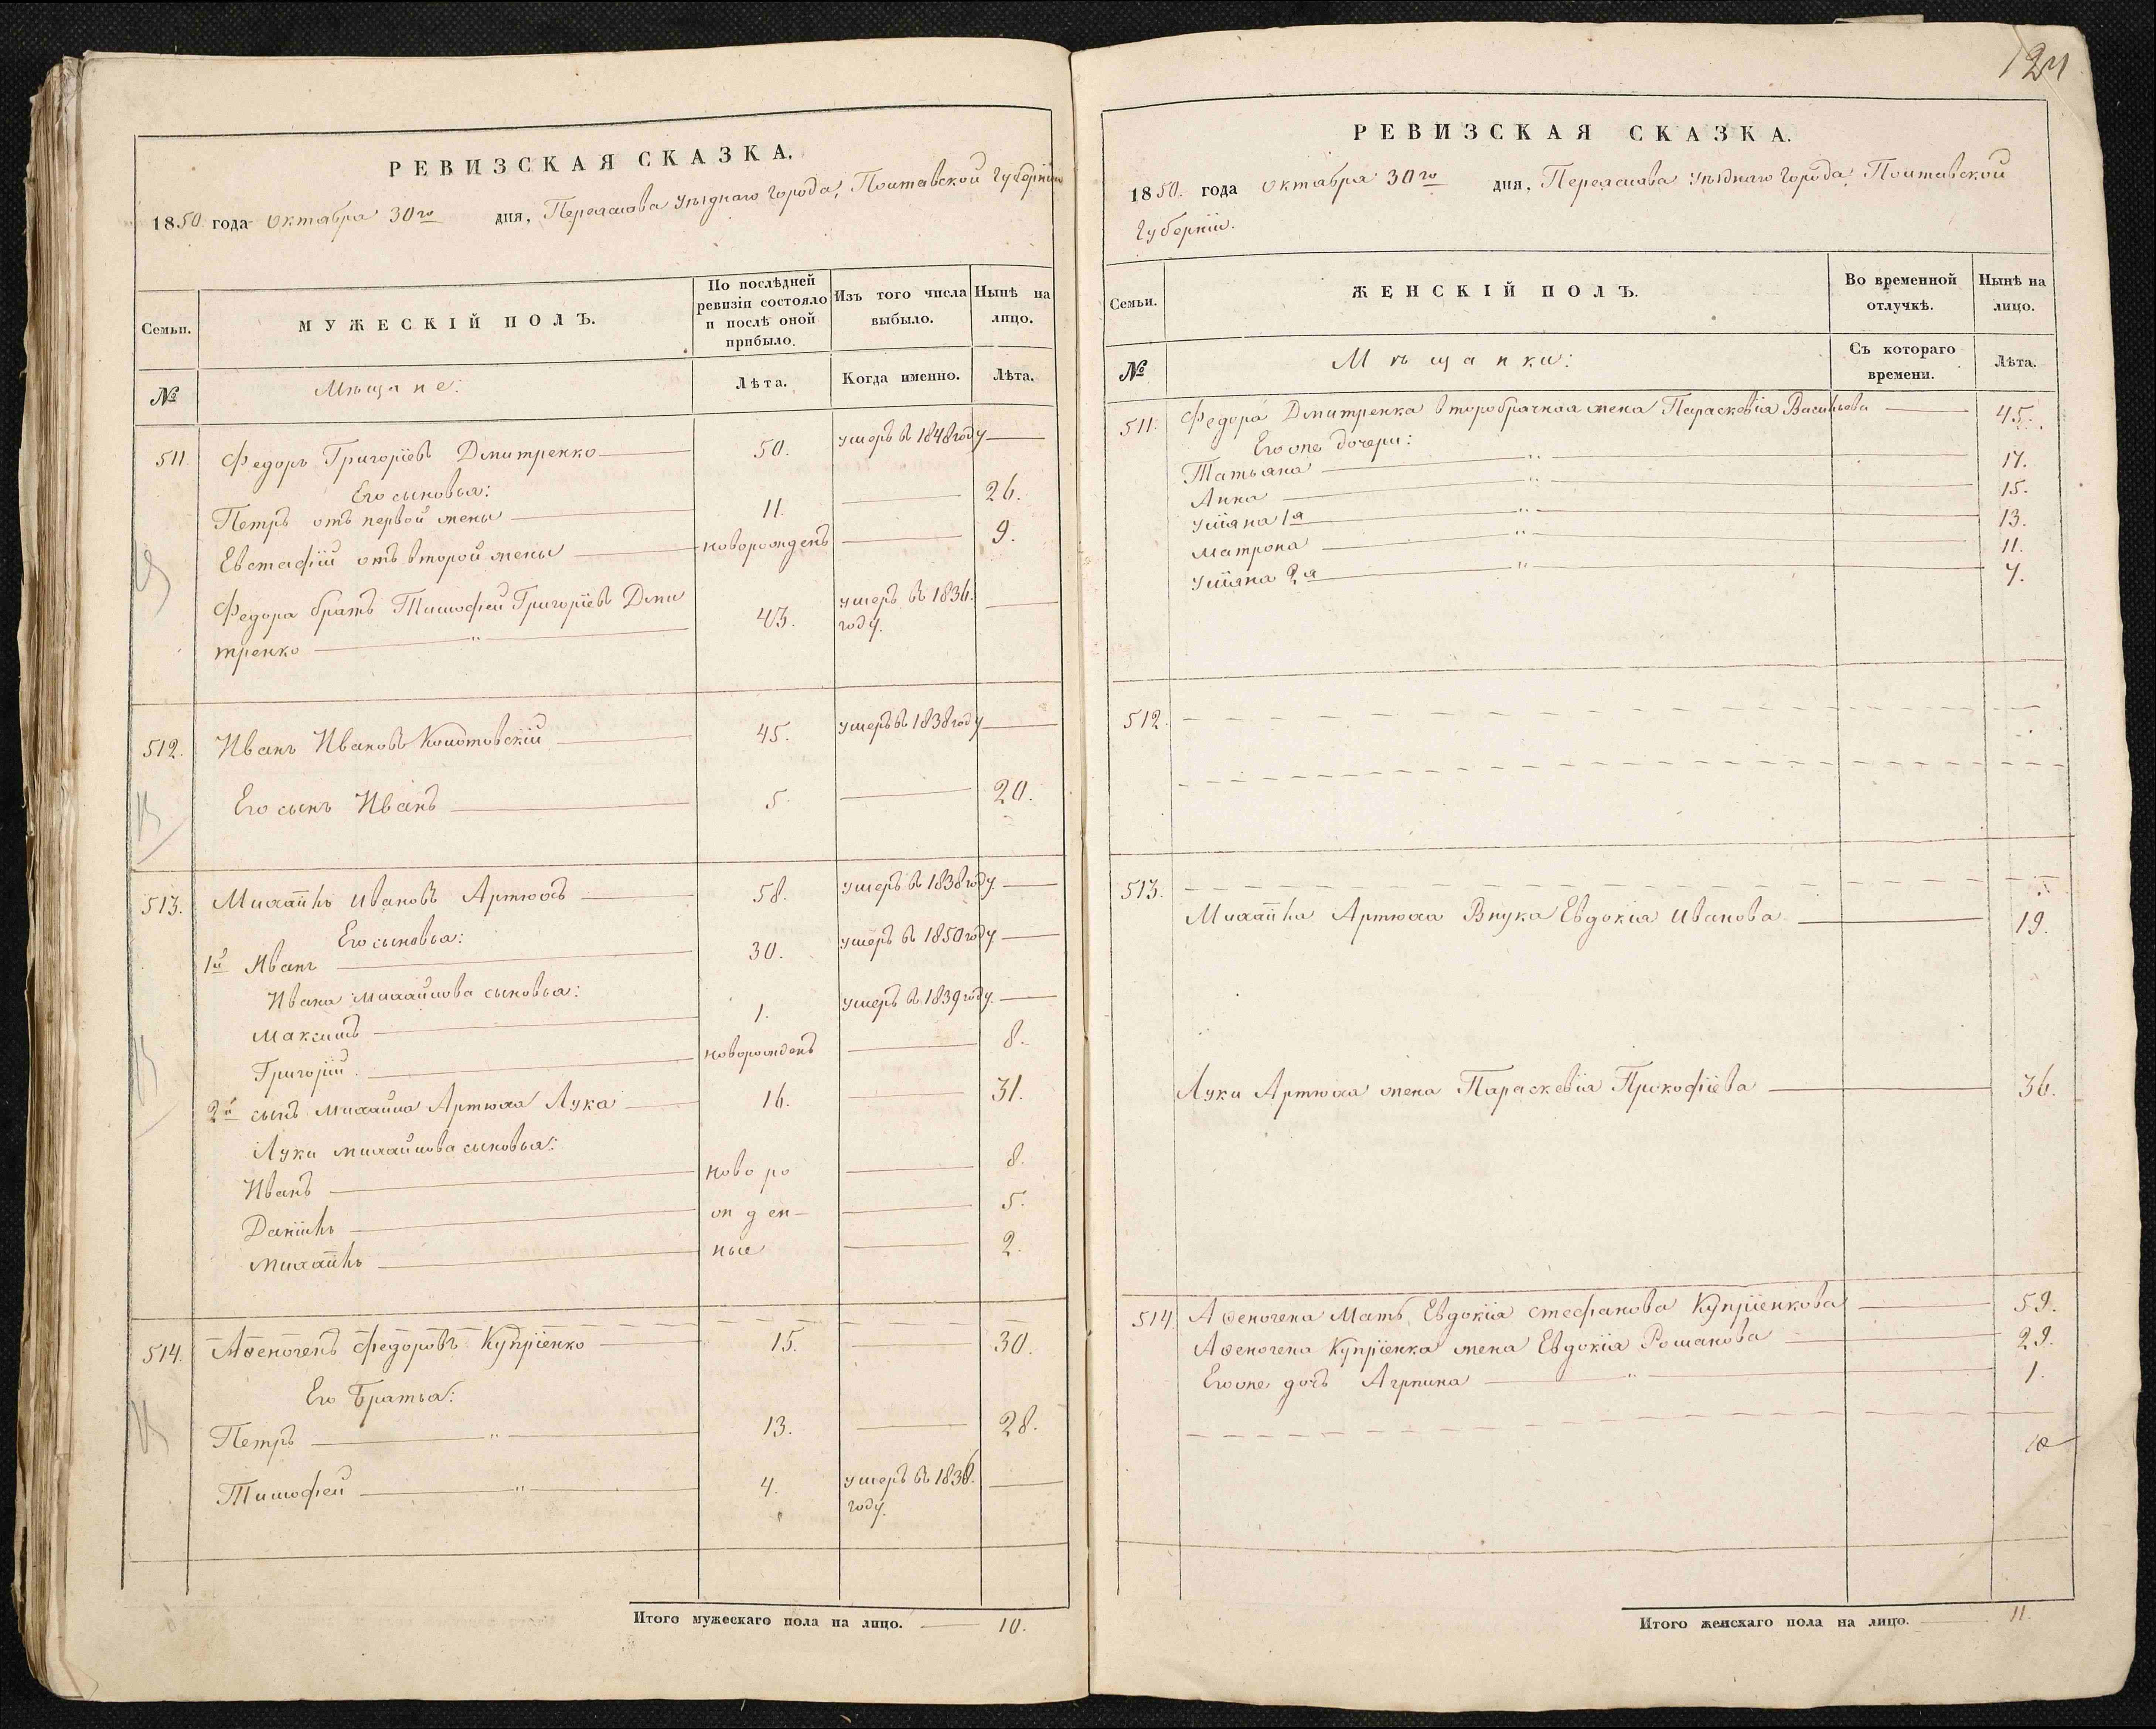 РЕВИЗСКАЯ СКАЗКА.
1850. года Октября 30го дня, Переяслава Уѣзднаго Города, Полтавской Губерніи
Семьи.
МУЖЕСКІЙ ПОЛЪ.
По послѣдней
ревизіи состояло
и послѣ оной
прибыло.
Изъ того числа
выбыло.
Нынѣ на
лицо.
№
Мѣщане:
Лѣта.
Когда именно.
Лѣта.
511. Федоръ Григоріевъ Дмитренко 50. умеръ въ 1848 году
Его сыновья:
Петръ отъ первой жены 11. 26.
Евстафій отъ второй жены новорожденъ 9.
Федора братъ Тимофей Григоріевъ Дми 43. умеръ въ 1836.
тренко " году.
512. Иванъ Ивановъ Колотовскій 45. умеръ въ 1838 году
Его сынъ Иванъ 5. 20.
513. Михаилъ Ивановъ Артюхъ 58. умеръ въ 1838 году
Его сыновья:
1й Иванъ 30. умеръ въ 1850 году
Ивана Михайлова сыновья:
Максимъ 1. умеръ въ 1839 году.
Григорій новорожденъ 8.
2й сынъ Михайла Артюха Лука 16. 31.
Луки Михайлова сыновья:
Иванъ ново ро 8.
Даніилъ ж ден- 5.
Михаилъ ные 2.
514. Аѳеногенъ Федоровъ Купріенко 15. 30.
Его Братья:
Петръ " 13. 28.
Тимофей " 4. умеръ въ 1838.
году.
Итого мужескаго пола на лицо. 10.
124
РЕВИЗСКАЯ СКАЗКА.
1850. года Октября 30го дня, Переяслава Уѣзднаго Города, Полтавской
Губерніи.
Семьи.
ЖЕНСКІЙ ПОЛЪ.
Во временной
отлучкѣ.
Нынѣ на
лицо.
№
Мѣщанки:
Съ котораго
времени.
Лѣта.
511. Федора Дмитренка второбрачная жена Параскевія Васильева 45.
Его же дочери:
Татьяна " 17.
Анна " 15.
Уліяна 1я " 13.
Матрона " 11.
Уліяна 2я " 7.
512.
513.
Михаила Артюха Внука Евдокія Иванова 19.
Луки Артюха жена Параскевія Прокофіева 36.
514. Аѳеногена Мать Евдокія Стефанова Купріенкова 59.
Аѳеногена Купріенка жена Евдокія Романова 29.
Его же дочь Агрпина " 1.
Итого женскаго пола на лицо. 11.